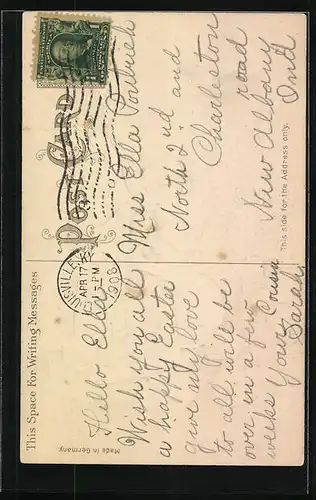 This Space For Writing Messages
Post Card
This side for the Address only.
Made in Germany.
LOUISVILLE
KY
APR 17
-PM
1908
Hello Ella
Wish you all
a happy Easter
give my love
to all will be
over in a few
weeks Your Cousin
Sarah
Miss Ella
North 2nd and
Charleston
road
New Albany
Ind